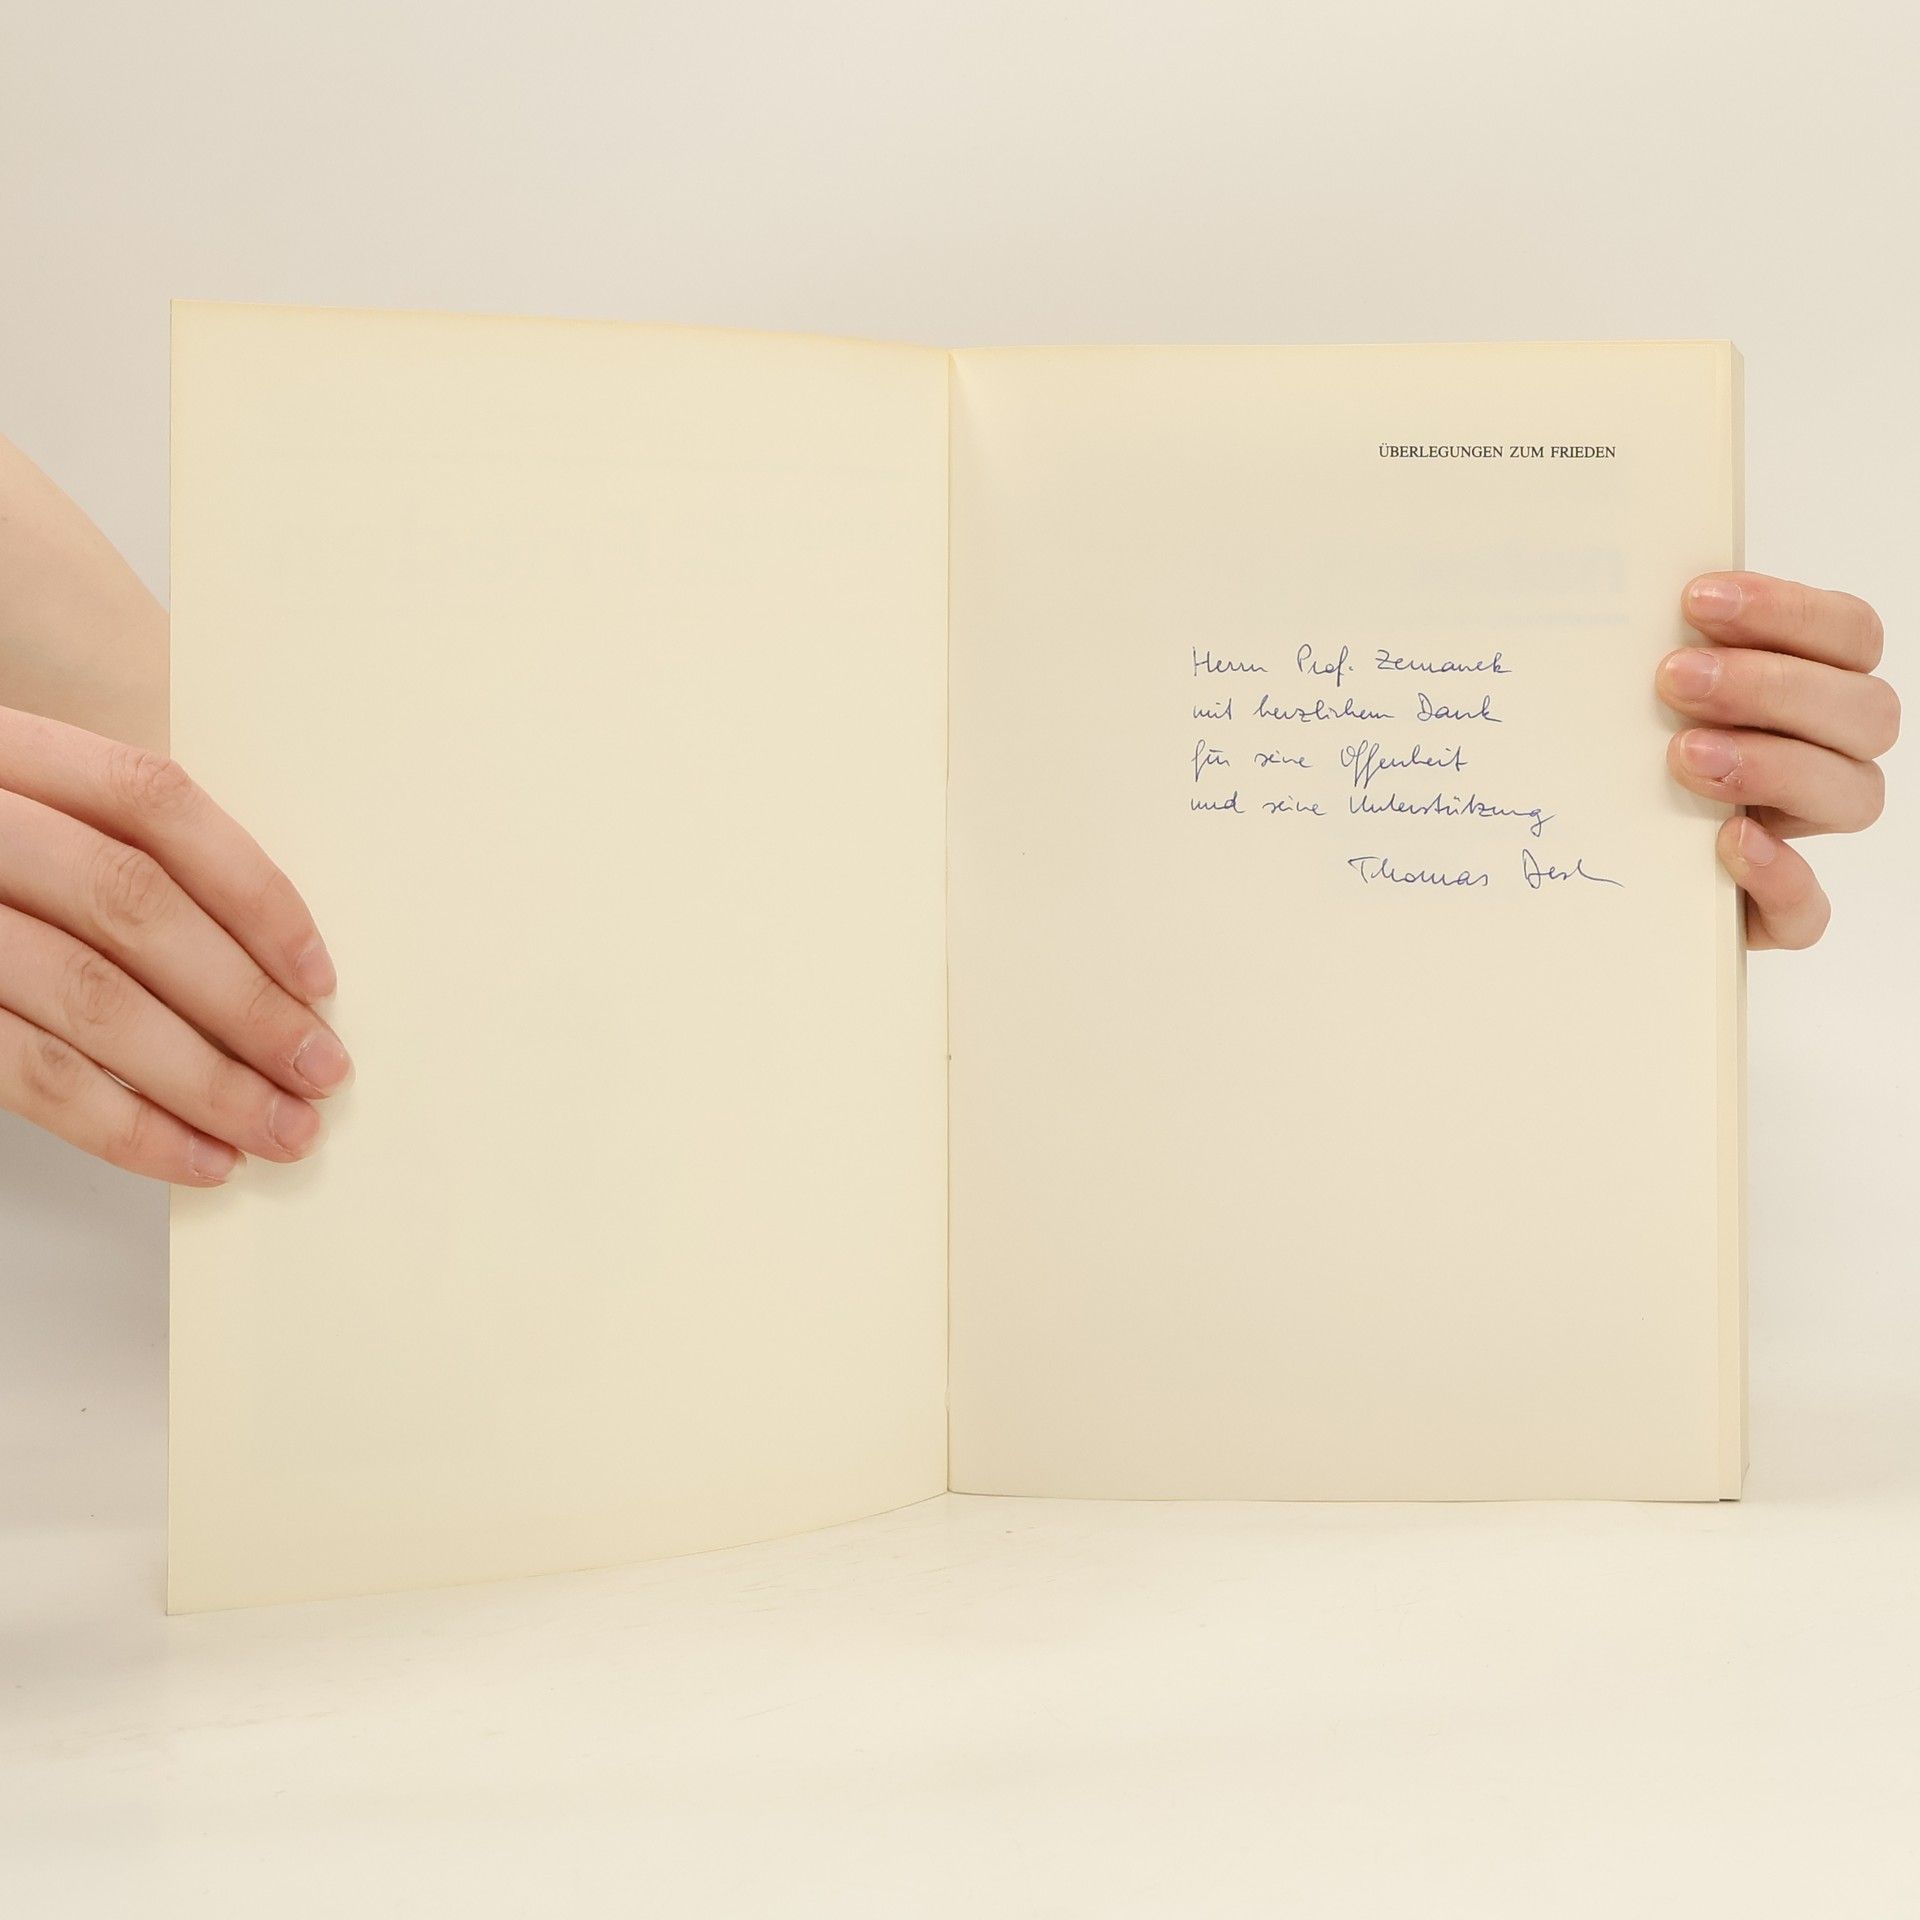 ÜBERLEGUNGEN ZUM FRIEDEN
Herrn Prof. Zemanek
mit herzlichem Dank
für seine Offenheit
und seine Unterstützung
Thomas